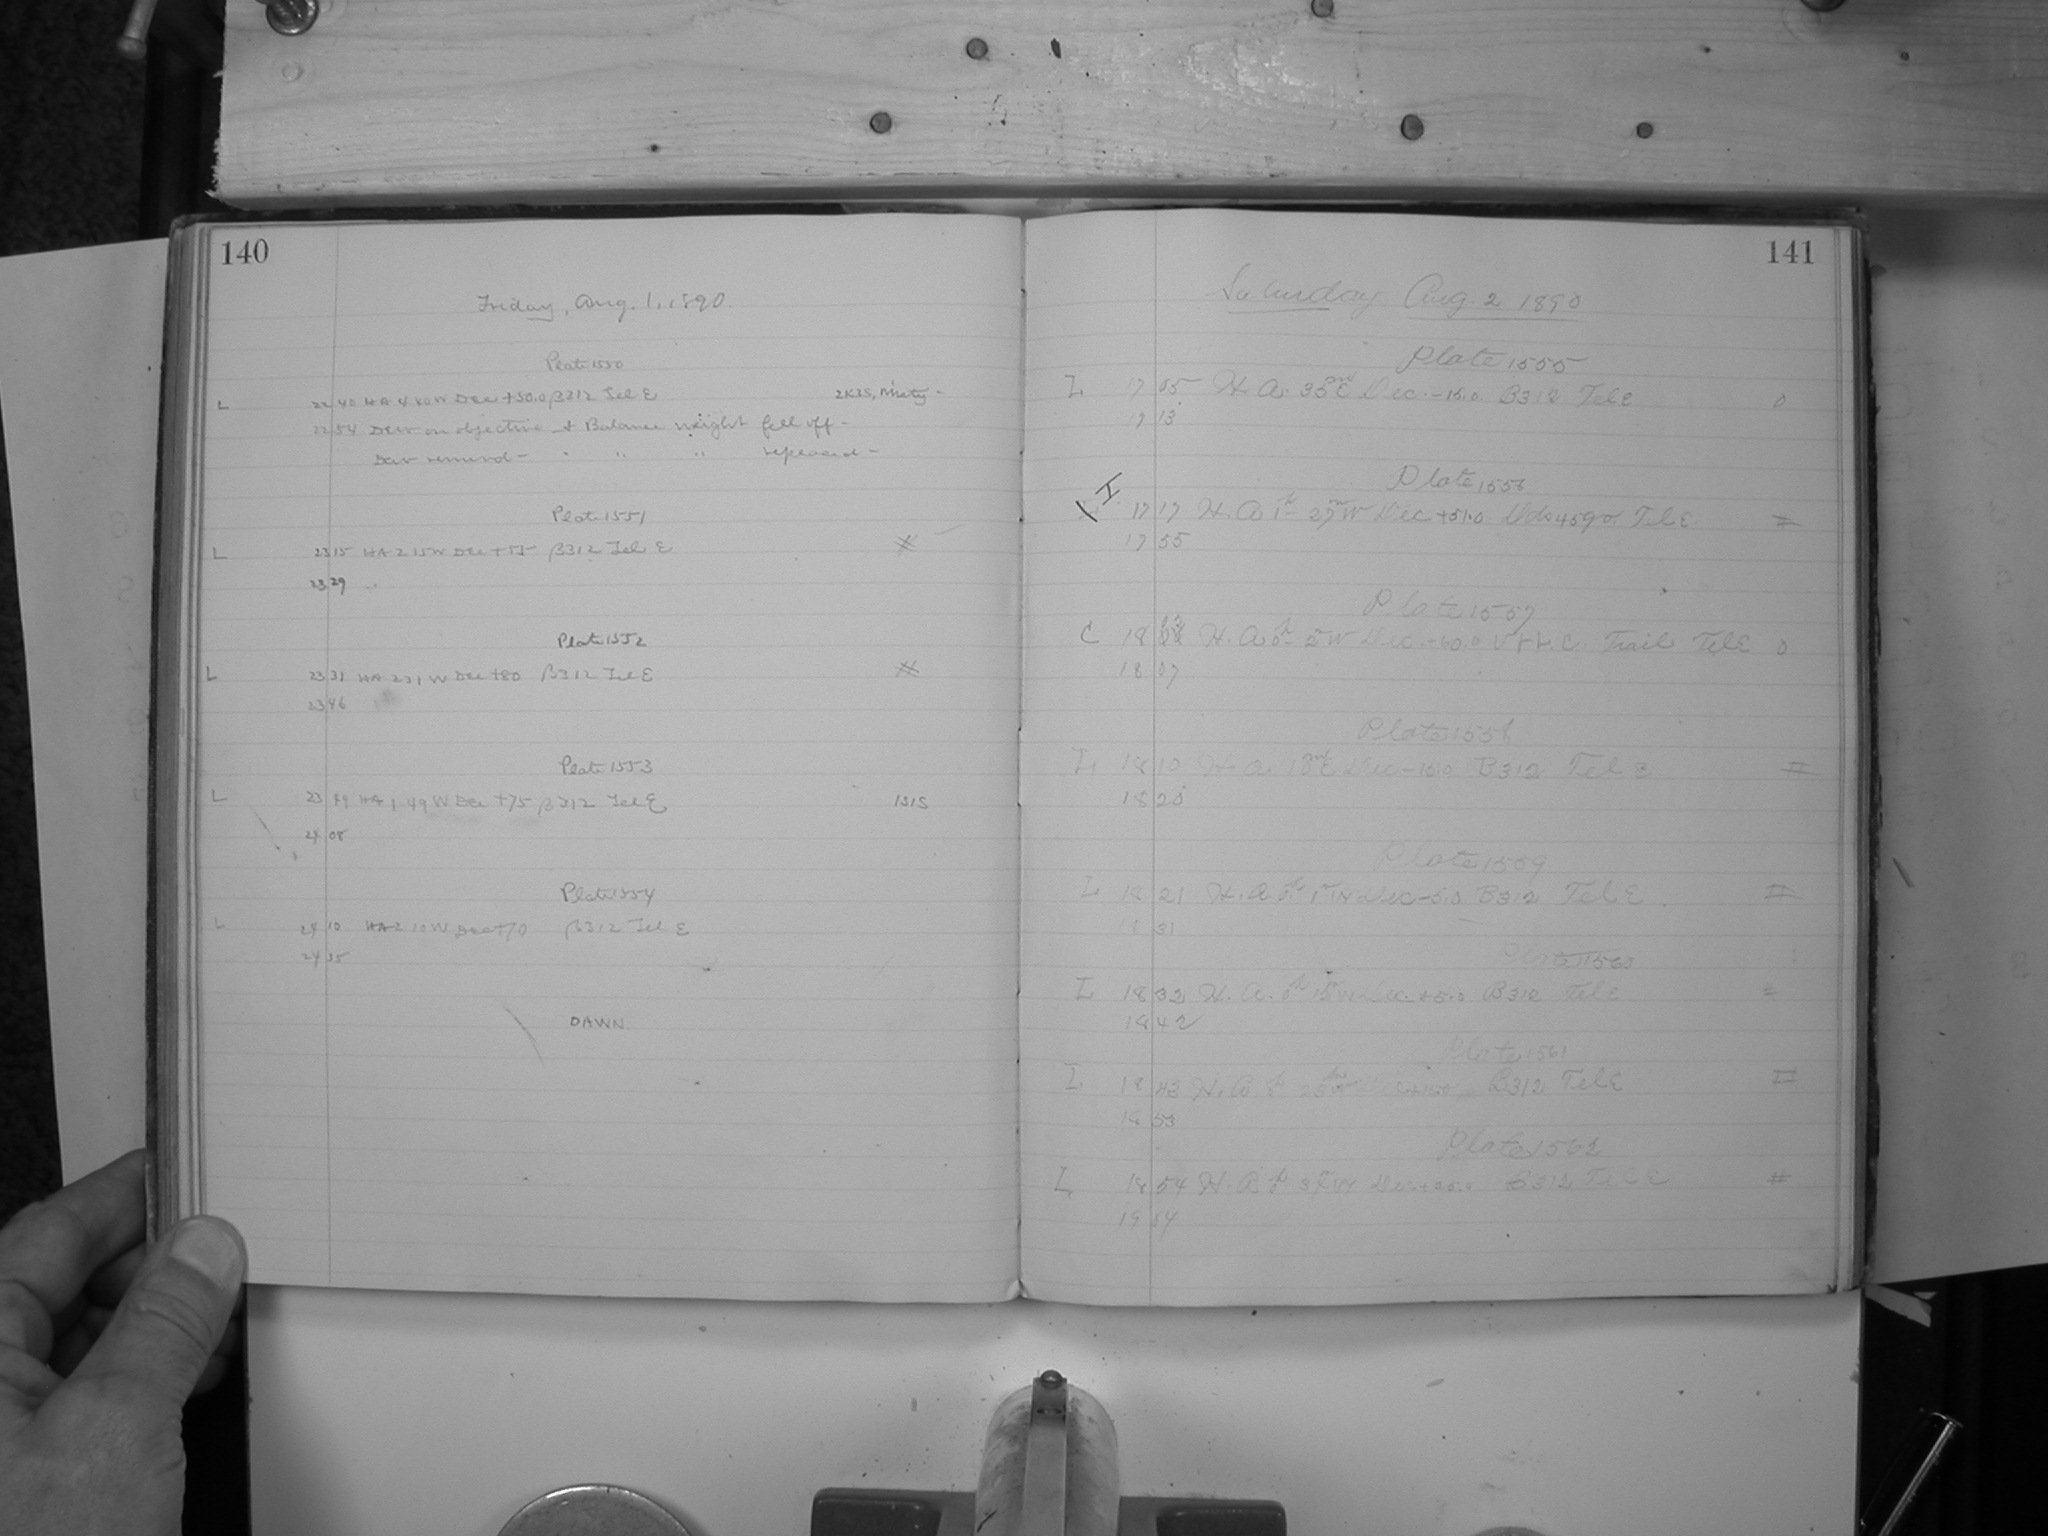 140
Friday, Aug. 1, 1890.
Plate 1550
L 22 40 HA 4 40 W Dec +50.0 β312 Tel E 2K3S, Misty -
22 54 Dew on objective & Balance weight fell off -
Dew removed - " " " replaced -
Plate 1551
L 23 15 HA 2 15 W Dec +75 β312 Tel E
23 29
Plate 1552
L 23 31 HA 2 31 W Dec +80 β312 Tel E
23 46
Plate 1553
L 23 49 HA 1 49 W Dec +75 β312 Tel E 1S1S
24 08
Plate 1554
L 24 10 HA 2 10 W Dec +70 β312 Tel E
24 35
DAWN
141
Saturday Aug. 2 1890
Plate 1555
L 17 05 H. A. 35m E Dec. -15.0 B312 Tel E 0
17 13
Plate 1556
I 17 17 H. A 1h 27m W Dec +51.0 Tel E =
17 55
Plate 1557
C 18 H. A 0h 2m W Dec. +60.0 Trail Tel E 0
18 07
Plate 1558
L 18 10 H. A. 18m E Dec -15.0 B312 Tel E =
18 20
Plate 1559
L 18 21 H. A. 0h 1m W Dec -5.0 B312 Tel E =
18 31
Plate 1560
L 18 32 H. A. 0h 12m W Dec. +5.0 B312 Tel E =
18 42
Plate 1561
L 18 43 H. A 0h W Dec +15.0 B312 Tel E =
18 53
Plate 1562
L 18 54 H. A 0h W Dec +25.0 B312 Tel E #
19 54